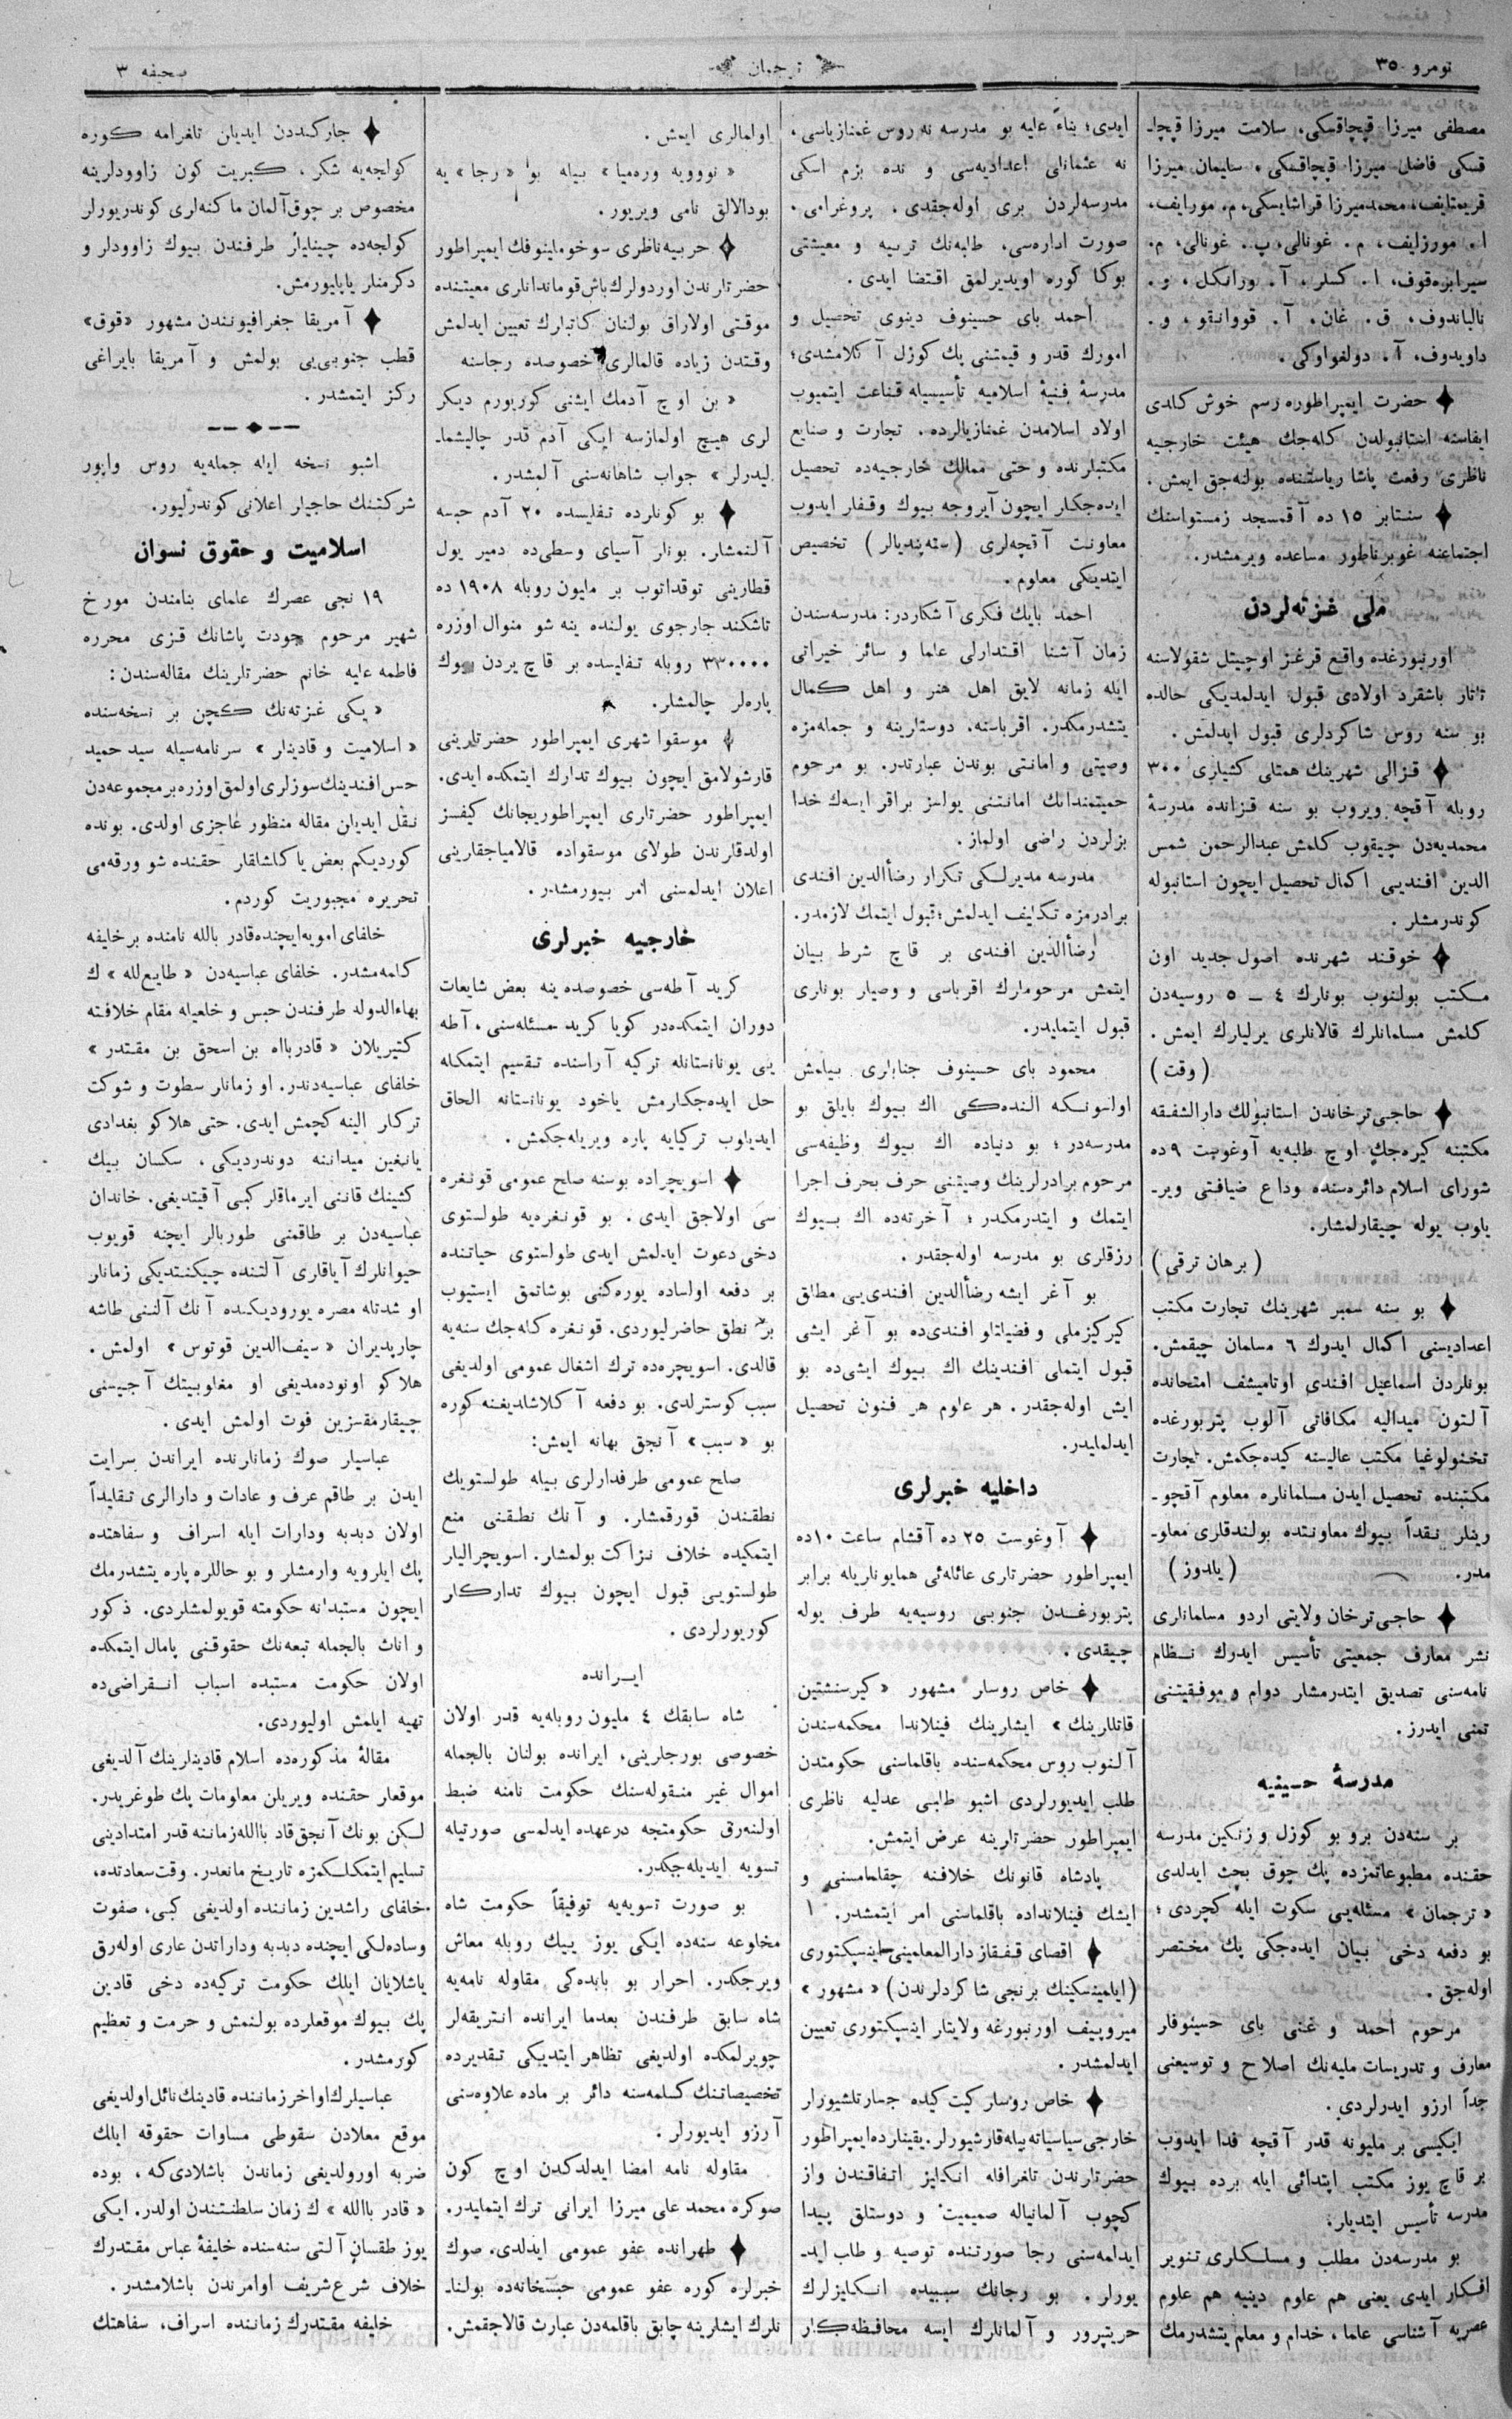 نومرو ٣٥
ترجمان
صحيفه ٣
مصطفى ميرزا قپچاقسكى، سلامت ميرزا قپچاـ
قسكى فاضل ميرزا قپچاقسكى، سليمان ميرزا
قريمتايف، محمدميرزا قراشايسكى، م. مورايف،
ا. مورزايف، م. غونالى، پ. غونالى، م.
سيرابزه‌قوف، ا. كسلر، آ. ورانكل، و.
نالباندوف، ق. غان. آ. قووانقو، و.
داويدوف، آ. دولغواوكى.
حضرت ايمپراطوره رسم خوش كلدى
ايفاسنه استانبولدن كله‌جك هيئت خارجيه
ناظرى رفعت پاشا رياستنده بولنه‌جق ايمش.
سنتابر ١٥ ده آقمسجد زمستواسنك
اجتماعنه غوبرناطور مساعده ويرمشدر.
ملى غزته‌لردن
اورنبورغده واقع قرغز اوچيتل شقولاسنه
تاتار باشقرد اولادى قبول ايدلمديكى حالده
بو سنه روس شاكردلرى قبول ايدلمش.
قزالى شهرينك همتلى كشيلرى ٣٠٠
روبله آقچه ويروب بو سنه قزانده مدرسهٔ
محمديه‌دن چيقوب كلمش عبدالرحمن شمس
الدين افنديى اكمال تحصيل ايچون استانبوله
كوندرمشلر.
خوقند شهرنده اصول جديد اون
مكتب بولنوب بونلرك ٤ ــ ٥ روسيه‌دن
كلمش مسلمانلرك قالانلرى يرليلرك ايمش.
(وقت)
حاجى‌ترخاندن استانبولك دارالشفقه
مكتبنه كيره‌جك اوچ طلبه‌يه آوغوست ٩ ده
شوراى اسلام دائره‌سنده وداع ضيافتى ويرـ
يلوب يوله چيقارلمشلر.
(برهان ترقى)
بو سنه سمبر شهرينك تجارت مكتب
اعداديسنى اكمال ايدوك ٦ مسلمان چيقمش.
بونلردن اسماعيل افندى اوتاميشف امتحانده
آلتون ميداليه مكافاتى آلوب پتربورغده
تخنولوغيا مكتب عاليسنه كيده‌جكمش. تجارت
مكتبنده تحصيل ايدن مسلمانلره معلوم آقچوـ
رينلر نقداً بيوك معاونتده بولندقلرى معلوـ
مدر. (يلدوز)
حاجى‌ترخان ولايتى اردو مسلمانلرى
نشر معارف جمعيتى تأسيس ايدرك نظام
نامه‌سنى تصديق ايتدرمشلر دوام و موفقيتنى
تمنى ايدرز.
مدرسهٔ حسينيه
بر سنه‌دن برو بو كوزل و زنكين مدرسه
حقنده مطبوعاتمزده پك چوق بحث ايدلدى
«ترجمان» مسئله‌يى سكوت ايله كچردى؛
بو دفعه دخى بيان ايده‌جكى پك مختصر
اوله‌جق.
مرحوم احمد و غنى باى حسينوفلر
معارف و تدريسات مليه‌نك اصلاح و توسيعنى
جداً ارزو ايدرلردى.
ايكيسى بر مليونه قدر آقچه فدا ايدوب
بر قاچ يوز مكتب ابتدائى ايله برده بيوك
مدرسه تأسيس ايتديلر.
بو مدرسه‌دن مطلب و مسلكلرى تنوير
افكار ايدى يعنى هم علوم دينيه هم علوم
عصريه آشناسى علما، خدام و معلم يتشدرمك
ايدى؛ بناءً عليه بو مدرسه نه روس غمنازياسى،
نه عثمانلى اعداديه‌سى و نده بزم اسكى
مدرسه‌لردن برى اوله‌جقدى. پروغرامى.
صورت اداره‌سى، طلبه‌نك تربيه و معيشتى
بوكا كوره اويدرلمق اقتضا ايدى.
احمد باى حسينوف دنيوى تحصيل و
امورك قدر و قيمتنى پك كوزل آكلامشدى؛
مدرسهٔ فنيهٔ اسلاميه تأسيسيله قناعت ايتميوب
اولاد اسلامدن غمنازيالرده. تجارت و صنايع
مكتبلرنده و حتى ممالك خارجيه‌ده تحصيل
ايده‌جكلر ايچون آيروجه بيوك وقفلر ايدوب
معاونت آقچه‌لرى (سته‌پنديالر) تخصيص
ايتديكى معلوم.
احمد بايك فكرى آشكاردر: مدرسه‌سندن
زمان آشنا اقتدارلى علما و سائر خيراتى
ايله زمانه لايق اهل هنر و اهل كمال
يتشدرمكدر. اقرباسنه. دوستلرينه و جمله‌مزه
وصيتى و امانتى بوندن عبارتدر. بو مرحوم
حميتمندانك امانتنى يولسز براقر ايسه‌ك خدا
بزلردن راضى اولماز.
مدرسه مديرلكى تكرار رضأالدين افندى
برادرمزه تكليف ايدلمش؛ قبول ايتمك لازمدر.
ارضأالدين افندى بر قاچ شرط بيان
ايتمش مرحوملرك اقرباسى و وصيلر بونلرى
قبول ايتمليدر.
محمود باى حسينوف جنابلرى بيلمش
اولسونكه النده‌كى اك بيوك بايلق بو
مدرسه‌در؛ بو دنياده اك بيوك وظيفه‌سى
مرحوم برادرلرينك وصيتنى حرف بحرف اجرا
ايتمك و ايتدرمكدر؛ آخرته‌ده اك بيوك
رزقلرى بو مدرسه اوله‌جقدر.
بو آغر ايشه رضأالدين افندى‌يى مطلق
كيركيزملى و فضيلتلو افندى‌ده بو آغر ايشى
قبول ايتملى افندينك اك بيوك ايشى‌ده بو
ايش اوله‌جقدر. هر علوم هر فنون تحصيل
ايدلمليدر.
داخليه خبرلرى
آوغوست ٢٥ ده آقشام ساعت ١٠ ده
ايمپراطور حضرتلرى عائله‌ئى همايونلريله برابر
پتربورغدن جنوبى روسيه‌يه طرف يوله
چيقدى.
خاص روسلر مشهور «كيرسنشتين
قاتللرينك» ايشلرينك فينلاندا محكمه‌سندن
آلنوب روس محكمه‌سنده باقلماسنى حكومتدن
طلب ايديورلردى اشبو طلبى عدليه ناظرى
ايمپراطور حضرتلرينه عرض ايتمش.
پادشاه قانونك خلافنه چقلمامسنى و
ايشك فينلانداده باقلماسنى امر ايتمشدر.
اقصاى قفقاز دارالمعلمينى اينسپكتورى
(ايلمينسكينك برنجى شاكردلرندن) «مشهور»
ميروپييف اورنبورغه ولايتلر اينسپكتورى تعيين
ايدلمشدر.
خاص روسلر كيت كيده جسارتلشيورلر
خارجى سياسياته بيله قارشيورلر. يقينلرده ايمپراطور
حضرتلرندن تلغرافله انكليز اتفاقندن واز
كچوب آلمانياله صميميت و دوستلق پيدا
ايدلمه‌سنى رجا صورتنده توصيه و طلب ايدـ
يورلر. بو رجانك سببيده انكليزلرك
حريتپرور و آلمانلرك ايسه محافظه‌كار
اولمالرى ايمش.
«نوويه وره‌ميا» بيله بو «رجا» يه
بودالالق نامى ويريور.
حربيه ناظرى سوخوملينوفك ايمپراطور
حضرتلرندن اوردولرك باش قوماندانلرى معيتنده
موقتى اولاراق بولنان كاتبلرك تعيين ايدلمش
وقتدن زياده قالمالرى خصوصده رجاسنه
«بن اوچ آدمك ايشنى كوريورم ديكر
لرى هيچ اولمازسه ايكى آدم قدر چاليشماـ
ليدرلر» جواب شاهانه‌سنى آلمشدر.
بو كونلرده تفليسده ٢٠ آدم حبسه
آلنمشلر. بونلر آسياى وسطى‌ده دمير يول
قطارينى توقداتوب بر مليون روبله ١٩٠٨ ده
تاشكند جارجوى يولنده ينه شو منوال اوزره
٣٣٠٠٠٠ روبله تفليسده بر قاچ يردن بيوك
پاره‌لر چالمشلر.
موسقوا شهرى ايمپراطور حضرتلرينى
قارشولامق ايچون بيوك تدارك ايتمكده ايدى.
ايمپراطور حضرتلرى ايمپراطوريجانك كيفسز
اولدقلرندن طولاى موسقواده قالامياجقلرينى
اعلان ايدلمسنى امر بيورمشدر.
خارجيه خبرلرى
كريد آطه‌سى خصوصده ينه بعض شايعات
دوران ايتمكده‌در كويا كريد مسئله‌سنى، آطه
يى يونانستانله تركيه آراسنده تقسيم ايتمكله
حل ايده‌جكلرمش ياخود يونانستانه الحاق
ايديلوب تركيايه پاره ويريله‌جكمش.
اسويچراده بوسنه صلح عمومى قونغره
سى اولاجق ايدى. بو قونغره‌يه طولستوى
دخى دعوت ايدلمش ايدى طولستوى حياتنده
بر دفعه اولساده يوره‌كنى بوشاتمق ايستيوب
بر نطق حاضرليوردى. قونغره كله‌جك سنه‌يه
قالدى. اسويچره‌ده ترك اشغال عمومى اولديغى
سبب كوسترلدى. بو دفعه آكلاشلديغنه كوره
بو «سبب» آنجق بهانه ايمش:
صلح عمومى طرفدارلرى بيله طولستويك
نطقندن قورقمشلر. و آنك نطقنى منع
ايتمكيده خلاف نزاكت بولمشلر. اسويچراليلر
طولستويى قبول ايچون بيوك تداركلر
كوريورلردى.
ايرانده
شاه سابقك ٤ مليون روبله‌يه قدر اولان
خصوصى بورجلرينى، ايرانده بولنان بالجمله
اموال غير منقوله‌سنك حكومت نامنه ضبط
اولنه‌رق حكومتجه درعهده ايدلمسى صورتيله
تسويه ايديله‌جكدر.
بو صورت تسويه‌يه توفيقاً حكومت شاه
مخلوعه سنه‌ده ايكى يوز بيك روبله معاش
ويرجكدر. احرار بو بابده‌كى مقاوله نامه‌يه
شاه سابق طرفندن بعدما ايرانده انتريقه‌لر
چويرلمكده اولديغى تظاهر ايتديكى تقديرده
تخصيصاتنك كسلمه‌سنه دائر بر ماده علاوه‌سنى
آرزو ايديورلر.
مقاوله نامه امضا ايدلدكدن اوچ كون
صوكره محمد على ميرزا ايرانى ترك ايتمليدر.
طهرانده عفو عمومى ايدلدى. صوك
خبرلره كوره عفو عمومى حبسخانه‌ده بولناـ
نلرك ايشلرينه چابق باقلمه‌دن عبارت قالاجقمش.
جاركنددن ايديلن تلغرامه كوره
كولجه‌يه شكر، كبريت كون زاوودلرينه
مخصوص بر چوق آلمان ماكنه‌لرى كوندريورلر
كولجه‌ده چينليلر طرفندن بيوك زاوودلر و
دكرمنلر ياپليورمش.
آمريقا جغرافيونندن مشهور «قوق»
قطب جنوبى‌يى بولمش و آمريقا بايراغى
ركز ايتمشدر.
اشبو نسخه ايله جمله‌يه روس واپور
شركتنك حاجيلر اعلانى كوندرليور.
اسلاميت و حقوق نسوان
١٩ نجى عصرك علماى بنامندن مورخ
شهير مرحوم جودت پاشانك قزى محرره
فاطمه عليه خانم حضرتلرينك مقاله‌سندن:
«يكى غزته‌نك كچن بر نسخه‌سنده
«اسلاميت و قادينلر» سرنامه‌سيله سيد حميد
حسن افندينك سوزلرى اولمق اوزره بر مجموعه‌دن
نقل ايديلن مقاله منظور عاجزى اولدى. بونده
كورديكم بعض ياكلشلقلر حقنده شو ورقه‌مى
تحريره مجبوريت كوردم.
خلفاى امويه ايچنده قادر بالله نامنده بر خليفه
كلمه‌مشدر. خلفاى عباسيه‌دن «طايع لله» ك
بهاءالدوله طرفندن حبس و خلعيله مقام خلافته
كتيريلان «قادربالله بن اسحق بن مقتدر»
خلفاى عباسيه‌دندر. او زمانلر سطوت و شوكت
تركلر الينه كچمش ايدى. حتى هلاكو بغدادى
يانغين ميداننه دوندرديكى، سكسان بيك
كشينك قاننى ايرماقلر كبى آقيتديغى. خاندان
عباسيه‌دن بر طاقمنى طوربالر ايچنه قويوب
حيوانلرك آياقلرى آلتنده چيكنتديكى زمانلر
او شدتله مصره يوروديكنده آنك آلننى طاشه
چارپديران «سيف‌الدين قوتوس» اولمش.
هلاكو اونوده‌مديغى او مغلوبيتك آجيسنى
چيقارمقسزين فوت اولمش ايدى.
عباسيلر صوك زمانلرنده ايراندن سرايت
ايدن بر طاقم عرف و عادات و دارالرى تقليداً
اولان دبدبه ودارات ايله اسراف و سفاهتده
پك ايلرويه وارمشلر و بو حاللره پاره يتشدرمك
ايچون مستبدانه حكومته قويولمشلردى. ذكور
و اناث بالجمله تبعه‌نك حقوقنى پامال ايتمكده
اولان حكومت مستبده اسباب انقراضى‌ده
تهيه ايلمش اوليوردى.
مقالهٔ مذكوره‌ده اسلام قادينلرينك آلديغى
موقعلر حقنده ويريلن معلومات پك طوغريدر.
لكن بونك آنجق قادر باالله زماننه قدر امتدادينى
تسليم ايتمكلكمزه تاريخ مانعدر. وقت سعادتده،
خلفاى راشدين زماننده اولديغى كبى، صفوت
وساده‌لكى ايچنده دبدبه وداراتدن عارى اوله‌رق
ياشلايان ايلك حكومت تركيه‌ده دخى قادين
پك بيوك موقعلرده بولنمش و حرمت و تعظيم
كورمشدر.
عباسيلرك اواخر زماننده قادينك نائل اولديغى
موقع معلادن سقوطى مساوات حقوقه ايلك
ضربه اورولديغى زماندن باشلادى كه، بوده
«قادر باالله» ك زمان سلطنتندن اولدر. ايكى
يوز طقسان آلتى سنه‌سنده خليفهٔ عباس مقتدرك
خلاف شرع شريف اوامرندن باشلامشدر.
خليفه مقتدرك زماننده اسراف، سفاهتك